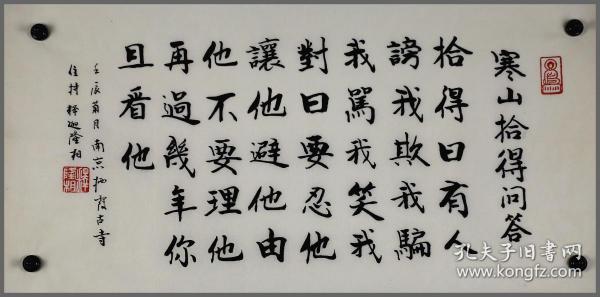 寒山拾得問答
拾得曰有人
謗我欺我騙
我罵我笑我
對曰要忍他
讓他避他由
他不要理他
再過幾年你
且看他
壬辰菊月南京栖霞古寺
住持釋迦隆相
孔夫子旧书网
www.kongfz.com